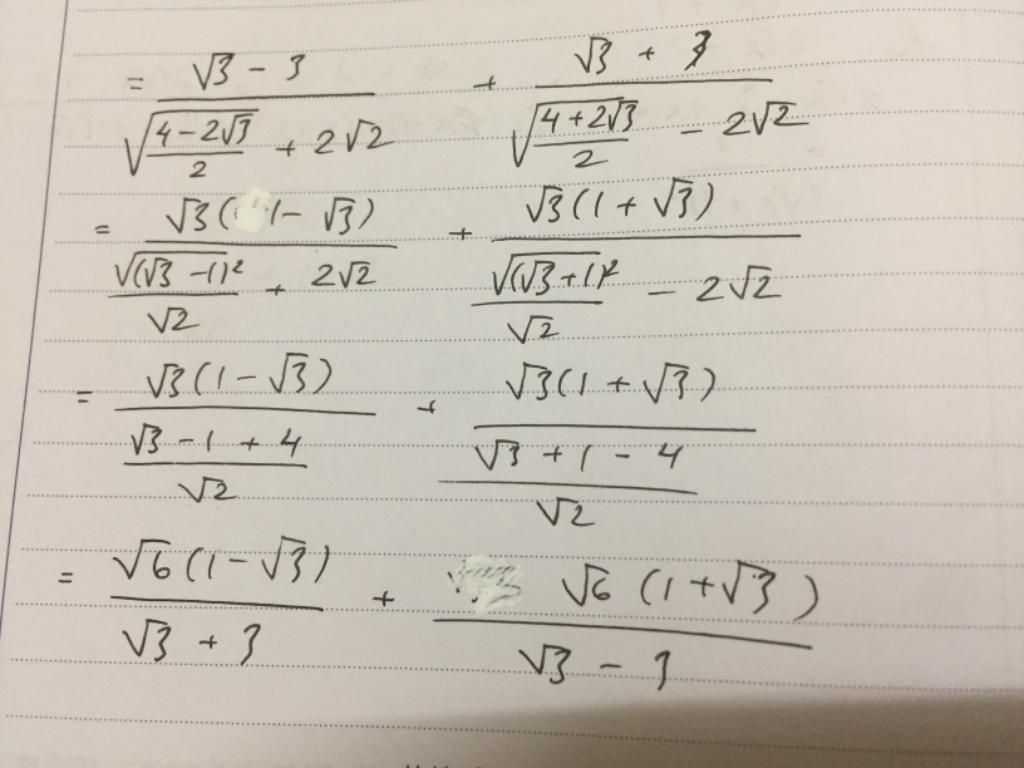 = (√3 - 3)/(√((4 - 2√3)/2) + 2√2) + (√3 + 3)/(√((4 + 2√3)/2) - 2√2)
= √3(1 - √3)/(√(√3 - 1)²/√2 + 2√2) + √3(1 + √3)/(√(√3 + 1)²/√2 - 2√2)
= √3(1 - √3)/((√3 - 1 + 4)/√2) + √3(1 + √3)/((√3 + 1 - 4)/√2)
= √6(1 - √3)/(√3 + 3) + √6(1 + √3)/(√3 - 3)